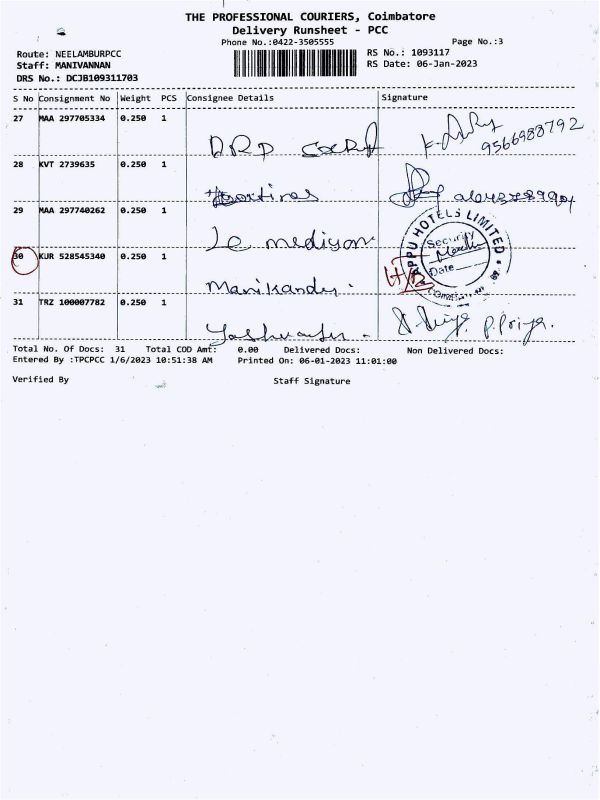 THE PROFESSIONAL COURIERS, Coimbatore
Delivery Runsheet - PCC
Phone No.:0422-3505555
Page No.:3
Route: NEELAMBURPCC
Staff: MANIVANNAN
DRS No.: DCJB109311703
RS No.: 1093117
RS Date: 06-Jan-2023
S No Consignment No Weight PCS Consignee Details Signature
27 MAA 297705334 0.250 1
DRP 9566988792
28 KVT 2739635 0.250 1
29 MAA 297740262 0.250 1
Le mediyan
APPU HOTELS LIMITED
Security
Date
30 KUR 528545340 0.250 1
Manikanden.
31 TRZ 100007782 0.250 1
P.Priya.
Total No. Of Docs: 31 Total COD Amt: 0.00 Delivered Docs: Non Delivered Docs:
Entered By :TPCPCC 1/6/2023 10:51:38 AM Printed On: 06-01-2023 11:01:00
Verified By Staff Signature